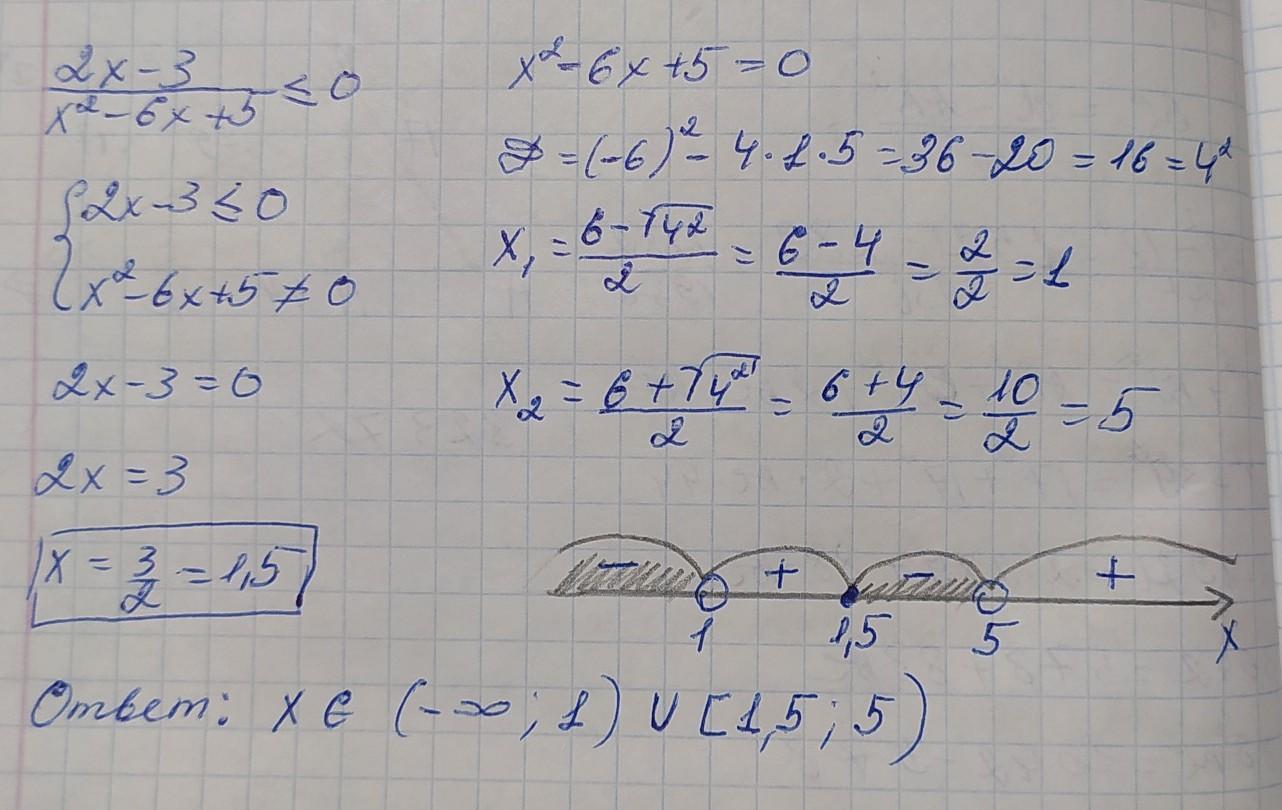 2x-3/x²-6x+5 ≤ 0
{2x-3 ≤ 0
x²-6x+5 ≠ 0
2x-3=0
2x=3
x = 3/2 = 1,5
x²-6x+5=0
D=(-6)²-4·1·5=36-20=16=4²
x₁ = 6-√4²/2 = 6-4/2 = 2/2 = 1
x₂ = 6+√4²/2 = 6+4/2 = 10/2 = 5
- + - +
1 1,5 5 x
Ответ: x ∈ (-∞; 1) ∪ [1,5; 5)